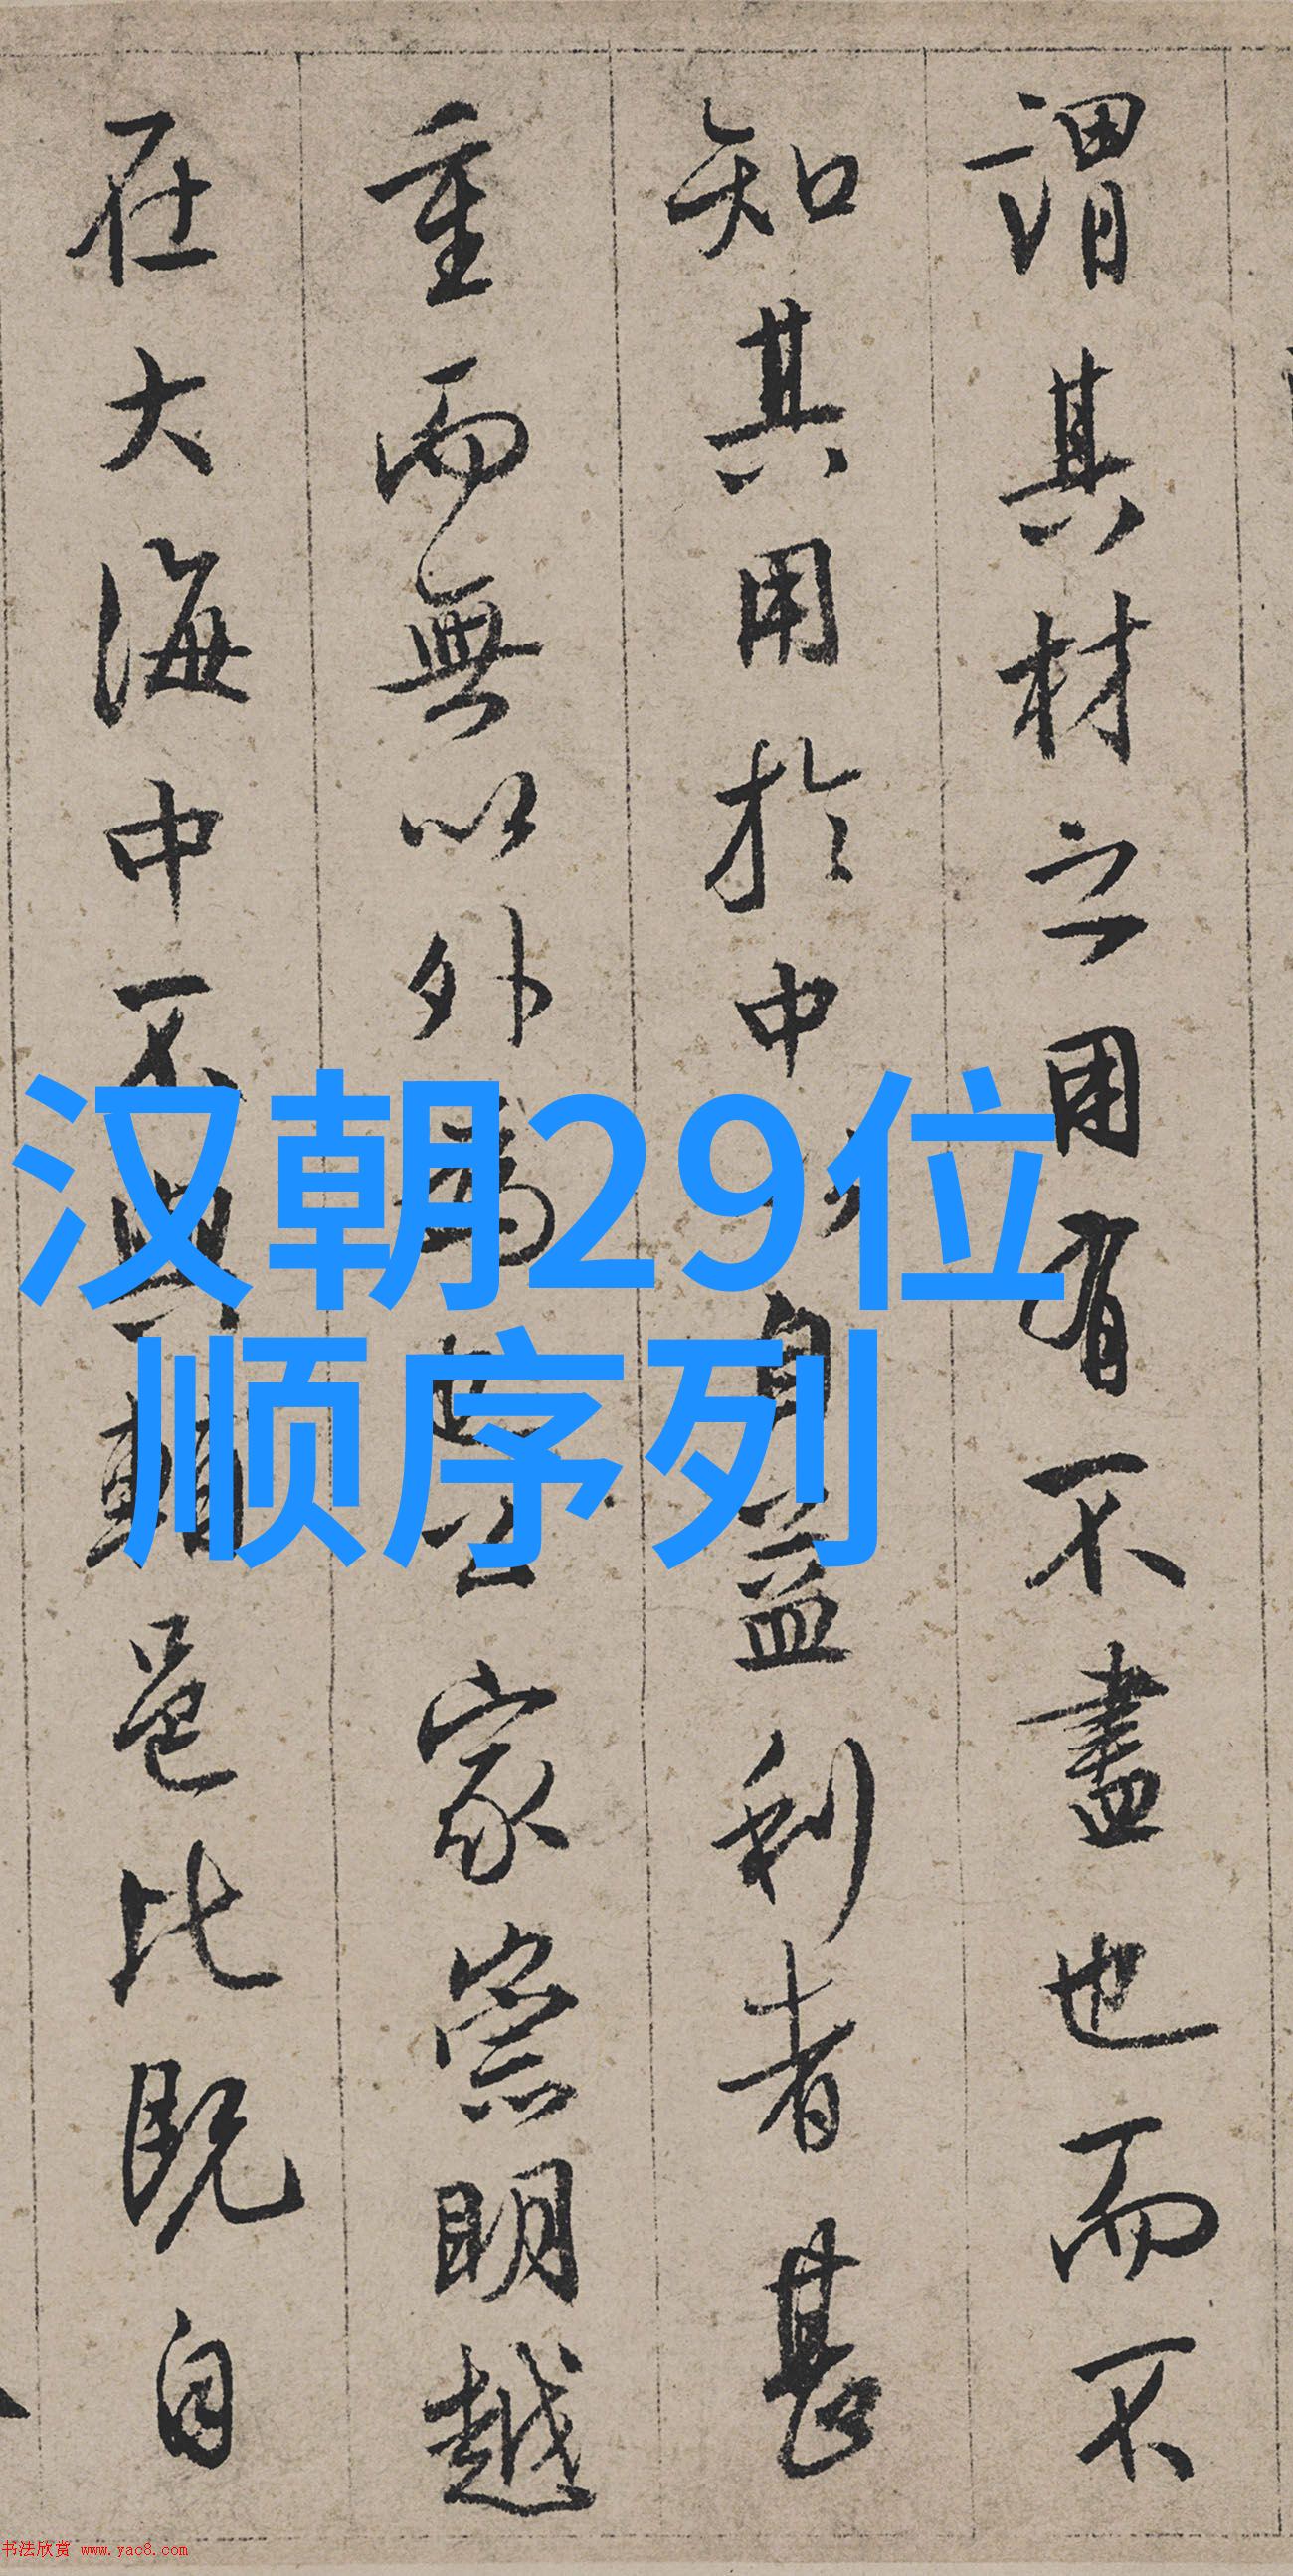 謂其材之用有不盡也而不
知其用於中自益利者甚
重而無以外為家崇明越
在大海中不與賴邑比既自
汉朝29位
顺序列
书法欣赏 www.yac8.com